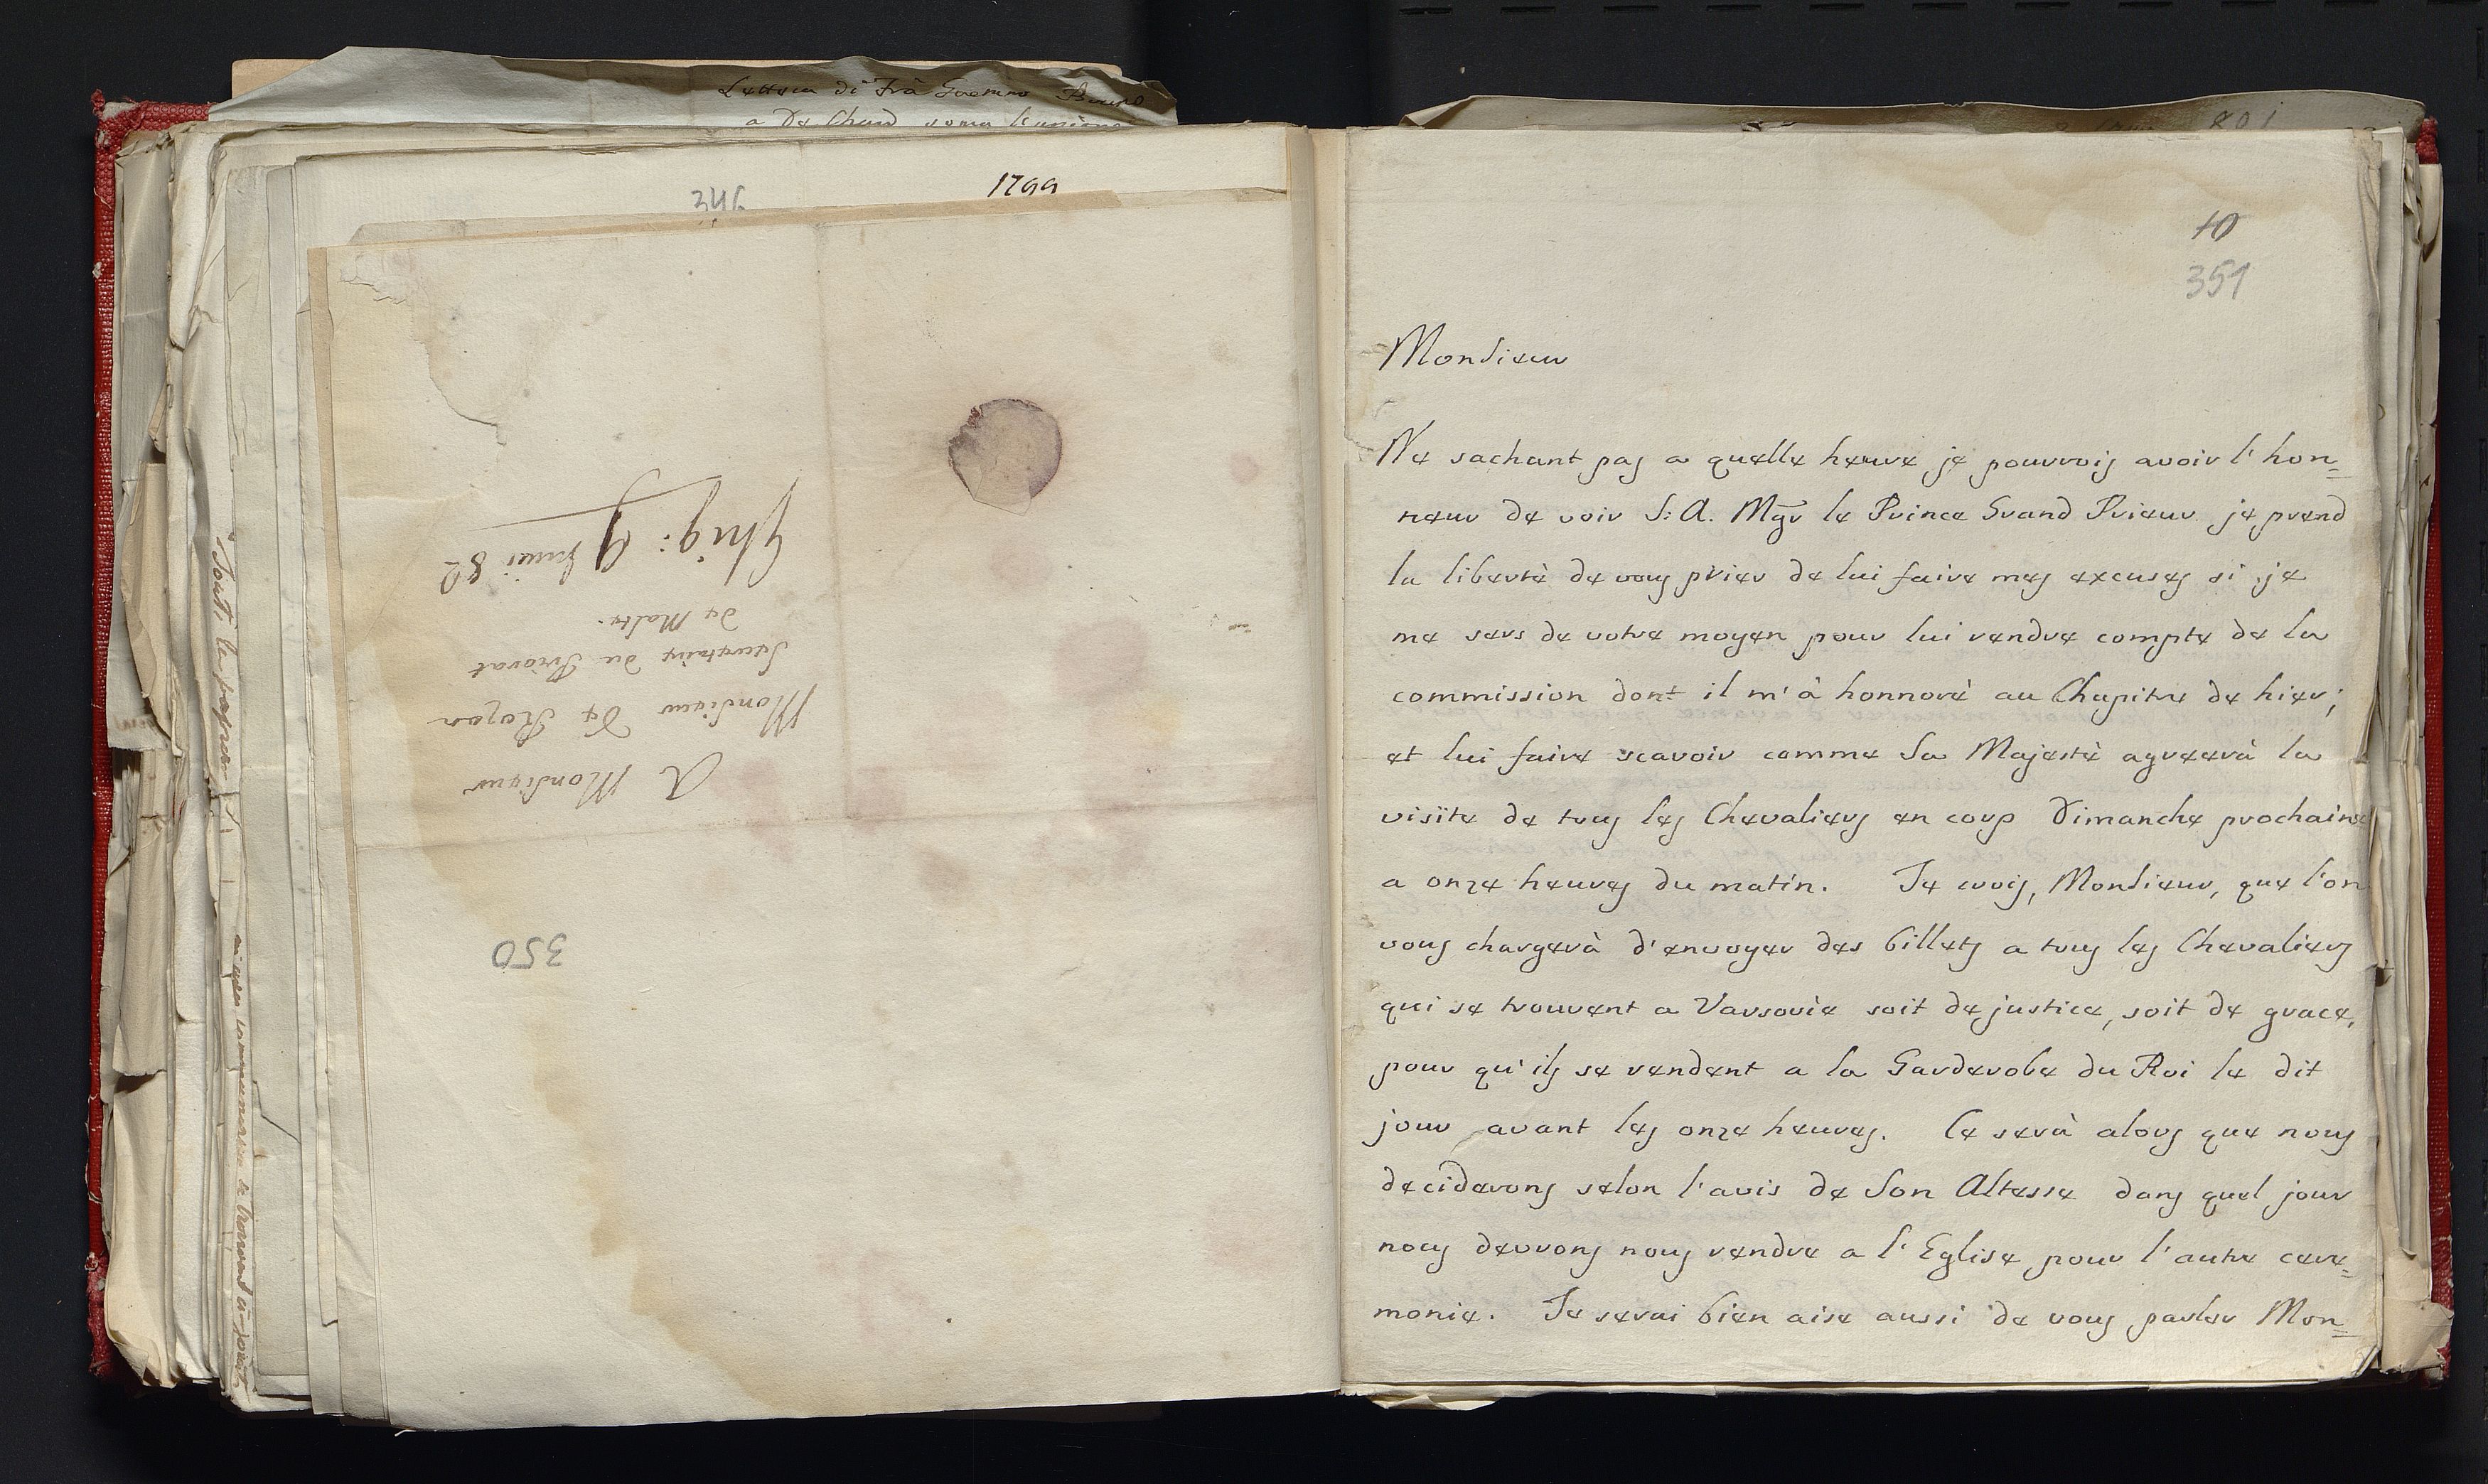 Lettera di Frà
a De
1799
346
350
A Monsieur
Monsieur De Rozan
Secretaire du Prieurat
De Malte.
Ghig: 9 Juin 82
10
351
Monsieur
Ne sachant pas a quelle heure je pourrois avoir l'hon=
neur de voir S: A. Mgr le Prince Grand Prieur je prend
la libertè de vous prier de lui faire mes excuses si je
me sers de votre moyen pour lui rendre compte de la
commission dont il m'à honnorè au Chapitre de hier;
et lui faire scavoir comme Sa Majestè agreerà la
visïte de tous les Chevaliers en corp Dimanche prochaine
a onze heures du matin. Je crois, Monsieur, que l'on
vous chargerà d'envoyer des billets a tous les Chevaliers
qui se trouvent a Varsovie soit de justice, soit de grace,
pour qu'ils se rendent a la Garderobe du Roi le dit
jour avant les onze heures. Ce serà alors que nous
deciderons selon l'avis de Son Altesse dans quel jour
nous devrons nous rendre a l'Eglise pour l'autre cere=
monie. Je serai bien aise aussi de vous parler Mon=